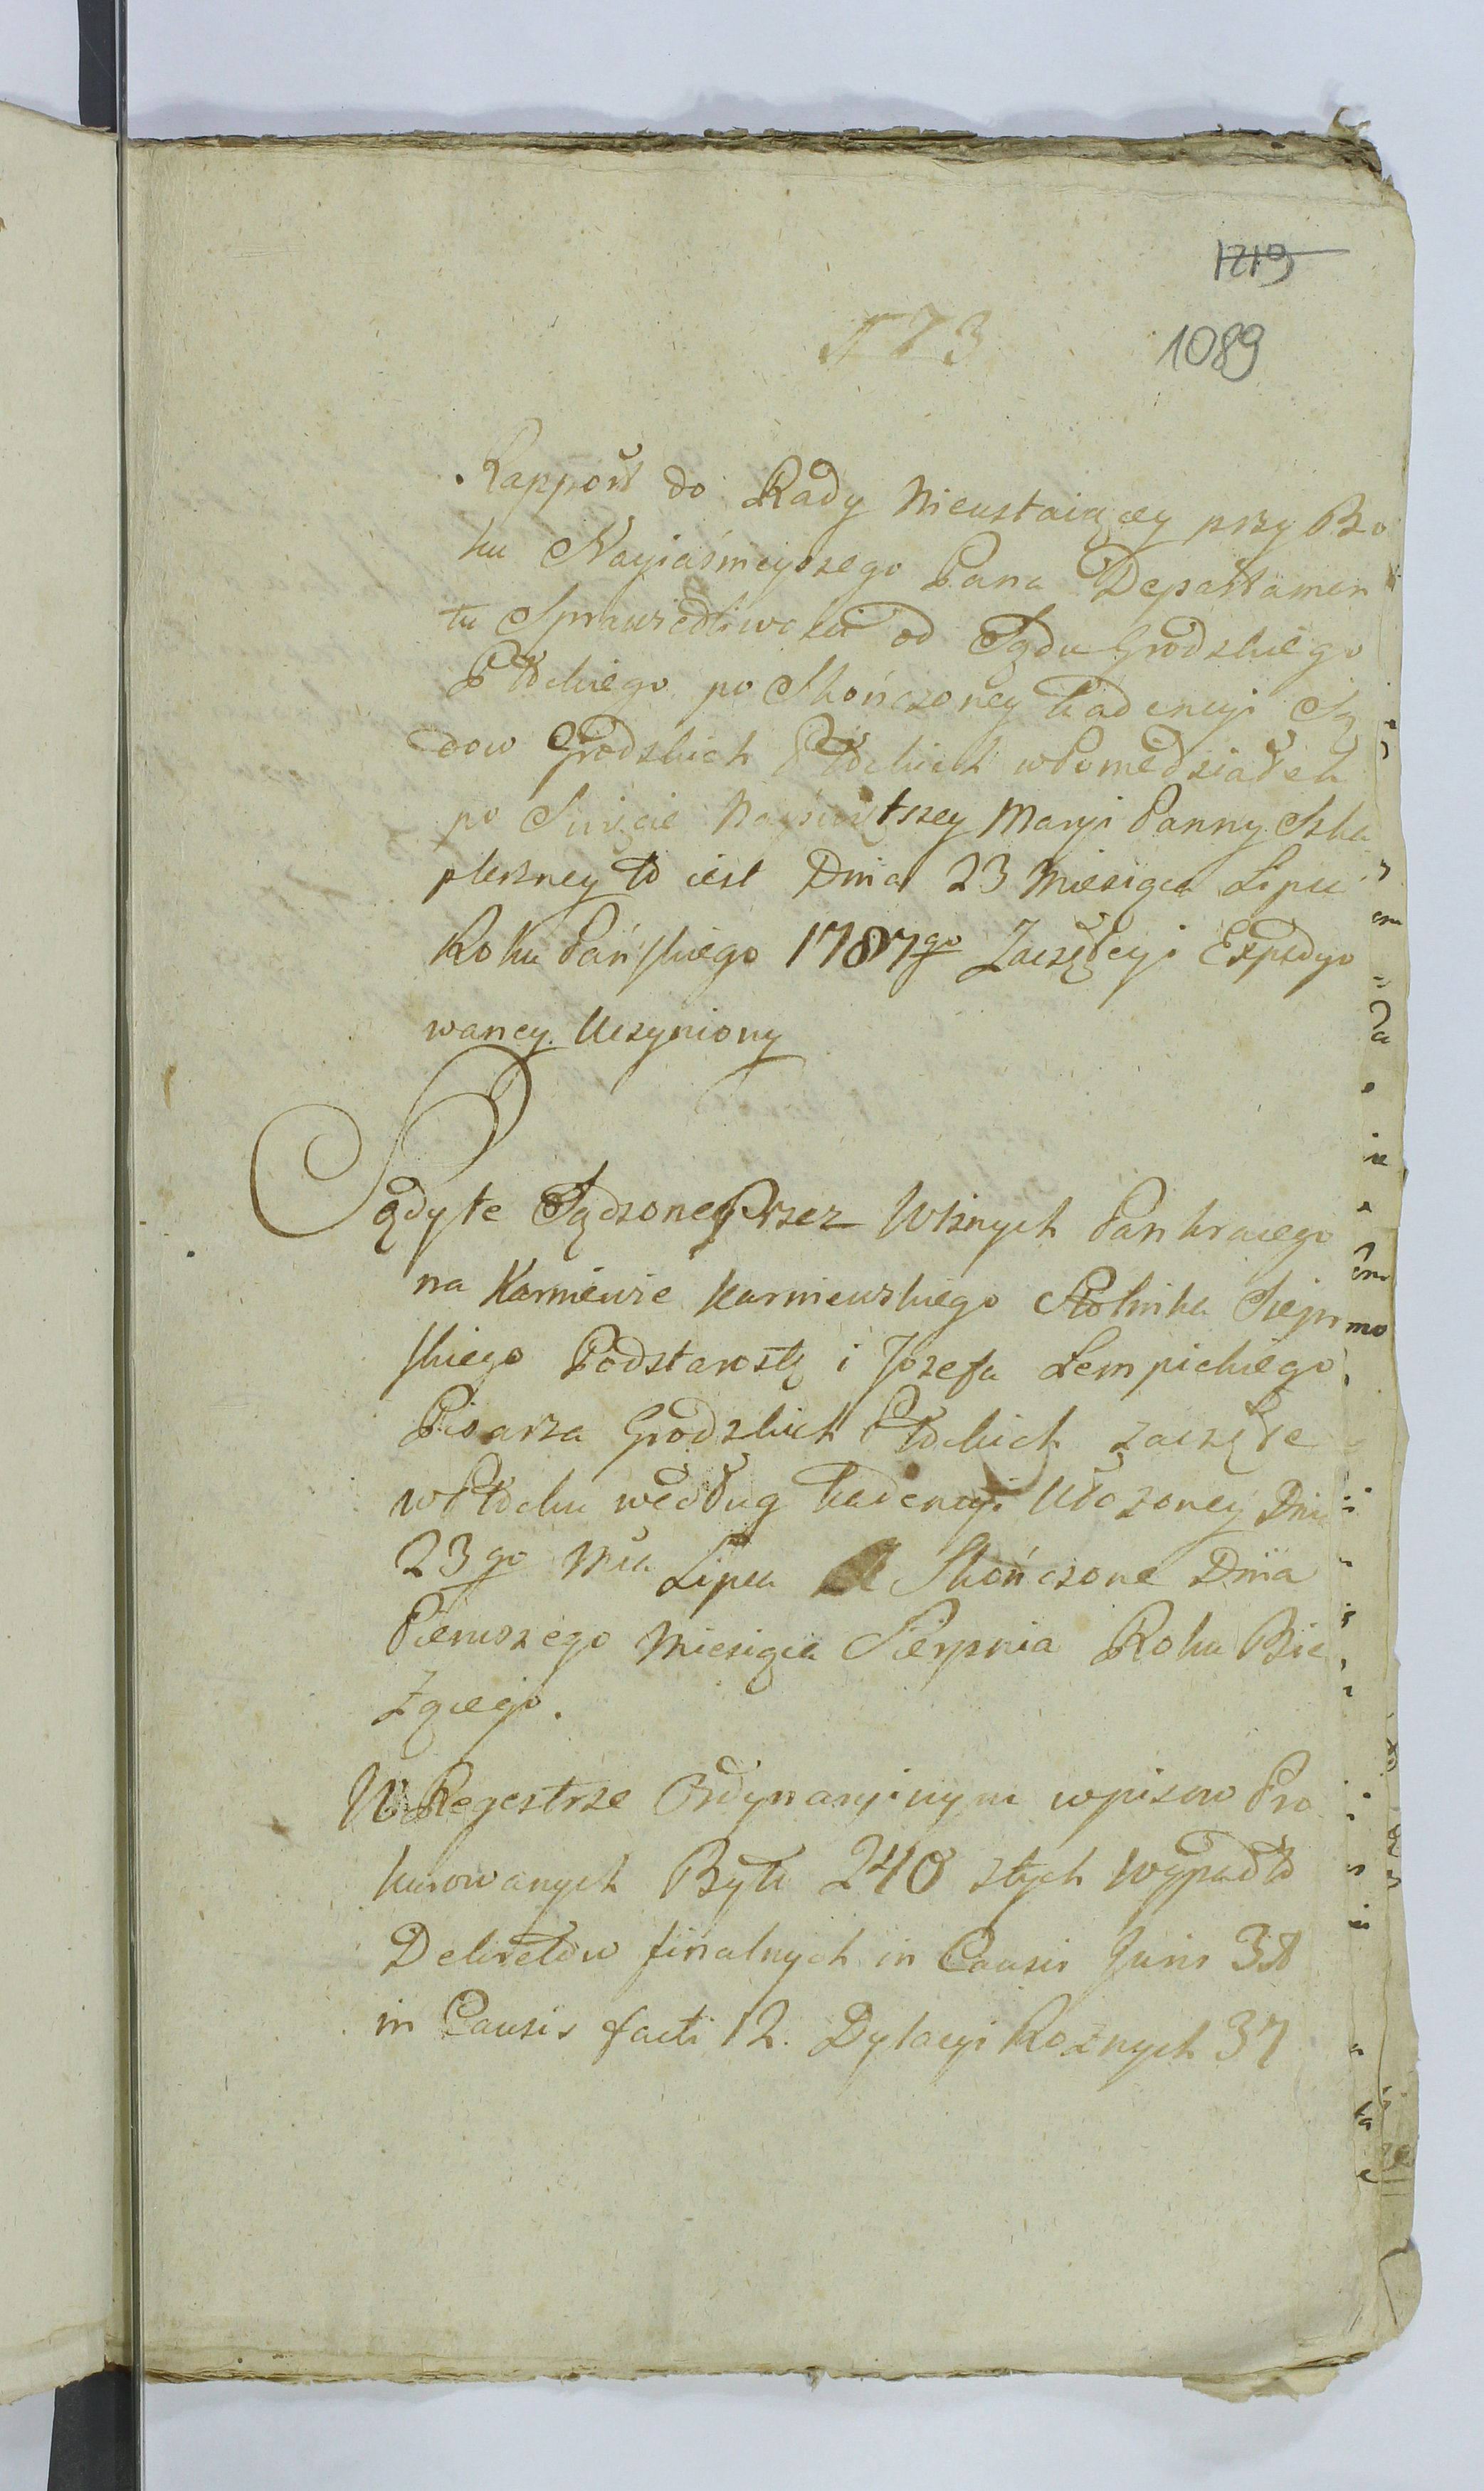 1219
573
1089
Rapport do Rady Nieustaiącey przy Bo
ku Nayiaśnieyszego Pana Departamen
tu Sprawiedliwości od Sądu Grodzkiego
Płłockiego po Skończoney Kadencyi Są
dow Grodzkich Płłockich w Poniedziałek
po Święcie Nayświętszey Maryi Panny Szka
plerzney to iest Dnia 23 Miesiąca Lipca
Roku Pańskiego 1787go Zaczętey i Expedyo
waney. Uczyniony
Sądy te Sądzone Przez Wżnych Pankracego
na Karniewie Karniewskiego Stolnika Sieprs
skiego Podstarostę i Jozefa Łempickiego
Pisarza Grodzkich Płłockich zaczęte
w Płłocku według Kadencyi Ułożoney Dnia
23go Mca Lipca A Skończone Dnia
Pierwszego Miesiąca Sierpnia Roku Bie
żącego.
W Regestrze Ordynaryinym wpisow Pro
kurowanych Było 240 z tych Wypadło
Dekretow finalnych in Causis Juris 38
in Causis facti 12. Dylacyi Rożnych 37